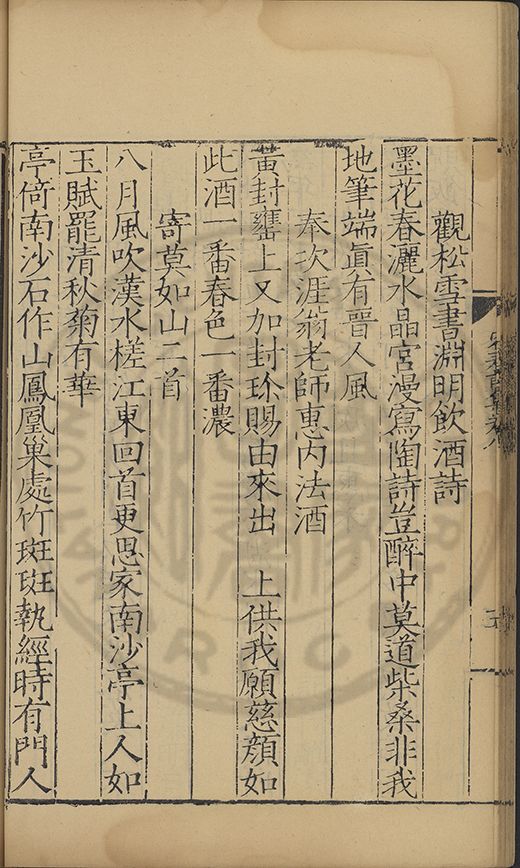 觀松雪書淵明飲酒詩
墨花春灑水晶宮漫寫陶詩豈醉中莫道柴桑非我
地筆端眞有晉人風
奉次涯翁老師惠内法酒
黃封罋上又加封珎賜由來出　上供我願慈顏如
此酒一番春色一番濃
寄莫如山二首
八月風吹漢水槎江東回首更思家南沙亭上人如
玉賦罷清秋菊有華
亭倚南沙石作山鳳凰巢處竹斑斑執經時有門人